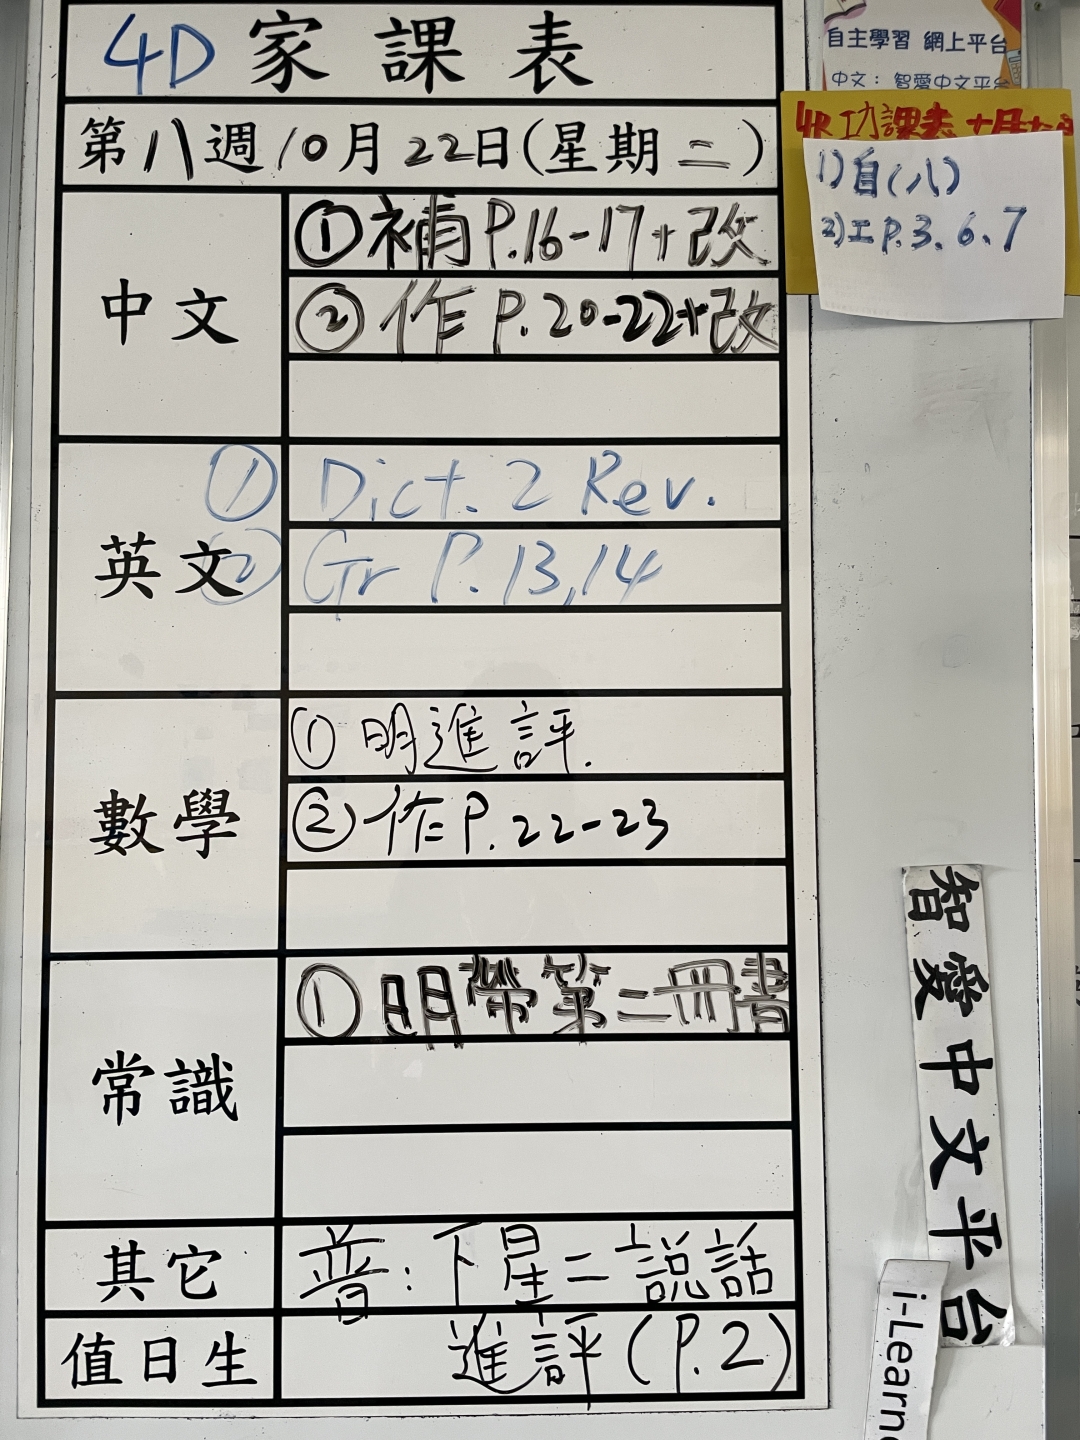 4D 家課表
第八週10月22日(星期二)
中文
①補P.16-17+改
②作P.20-22+改
英文
① Dict. 2 Rev.
② Gr P.13,14
數學
①明進評.
②作P.22-23
常識
①明帶第二冊書
其它
普:下星二說話
值日生
進評(P.2)
自主學習 網上平台
中文: 智愛中文平台
4R功課表
1)自(八)
2)工P.3、6、7
智愛中文平台
i-Learn